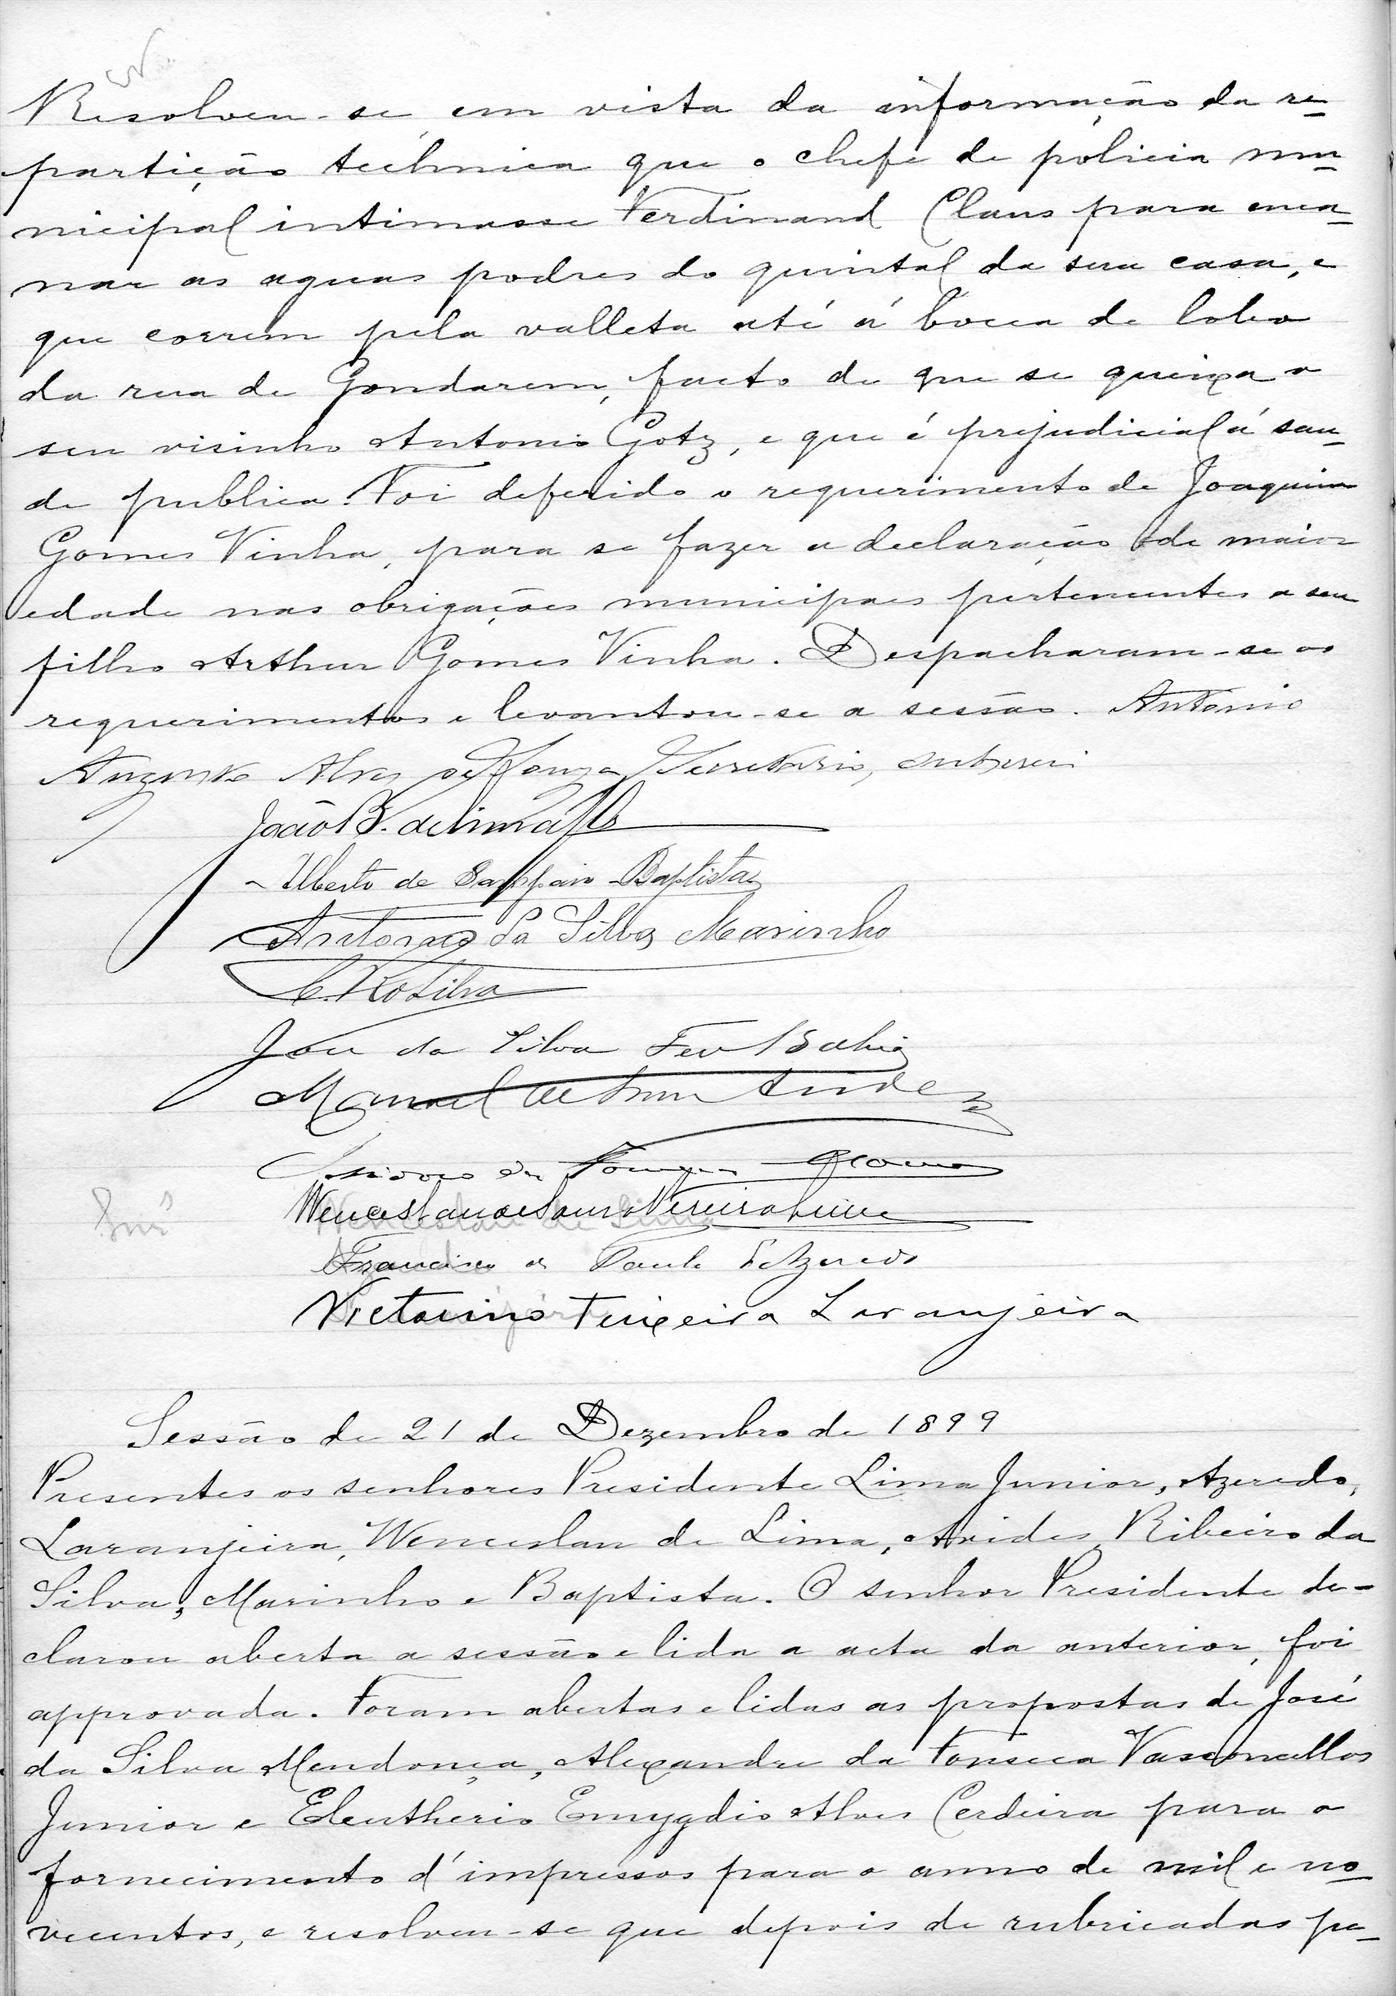 Resolveu-se, em vista da informação da re-
partição technica que o chefe de policia mu-
nicipal intimasse Ferdinand Claus para enca-
nar as aguas podres do quintal da sua casa, e
que correm pela valleta até á bocca de lobo
da rua de Gondarem, facto de que se queixa o
seu visinho Antonio Gotz, e que é prejudicial á sau-
de publica. Foi deferido o requerimento de Joaquim
Gomes Vinha, para se fazer a declaração de maior
edade nas obrigações municipaes pertencentes a seu
filho Arthur Gomes Vinha. Despacharam-se os
requerimentos e levantou-se a sessão. Antonio
Augusto Alves de Souza, Secretario, subscrevi
João B. de Lima Jor
Alberto de Sampaio Baptista
Antonio da Silva Marinho
C. Ro Silva
José da Silva Bahia
Manuel de Arides
da Fonseca
Wenceslau de Sousa Pereira Lima
Francisco de Paula d'Azeredo
Victorino Teixeira Laranjeira
Sessão de 21 de Dezembro de 1899
Presentes os senhores Presidente Lima Junior, Azeredo,
Laranjeira, Wenceslau de Lima, Arides, Ribeiro da
Silva, Marinho e Baptista. O senhor Presidente de-
clarou aberta a sessão e lida a acta da anterior, foi
approvada. Foram abertas e lidas as propostas de José
da Silva Mendonça, Alexandre da Fonseca Vasconcellos
Junior e Eleutherio Emygdio Alves Cerdeira para o
fornecimento d'impressos para o anno de mil e no-
vecentos, e resolveu-se que depois de rubricadas pe-